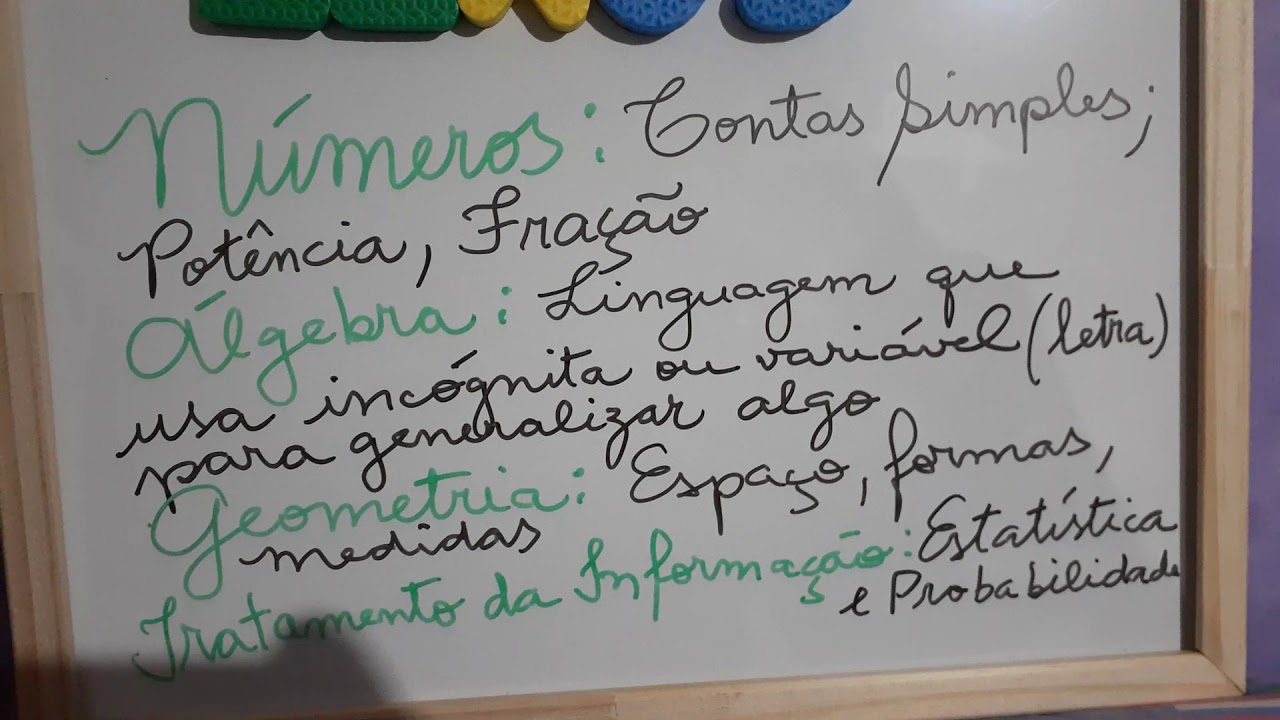 Números: Contas Simples;
Potência, Fração
Álgebra: Linguagem que
usa incógnita ou variável (letra)
para generalizar algo
Geometria: Espaço, formas,
medidas
Tratamento da Informação: Estatística
e Probabilidade